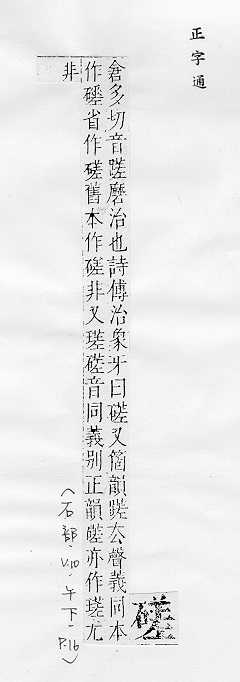 正字通
磋
倉多切音蹉磨治也詩傳治象牙曰磋又箇韻蹉去聲義同本
作䃰省作磋舊本作磋非又瑳磋音同義別正韻磋亦作瑳尤
非
(石部、V.10、午下、P.16)